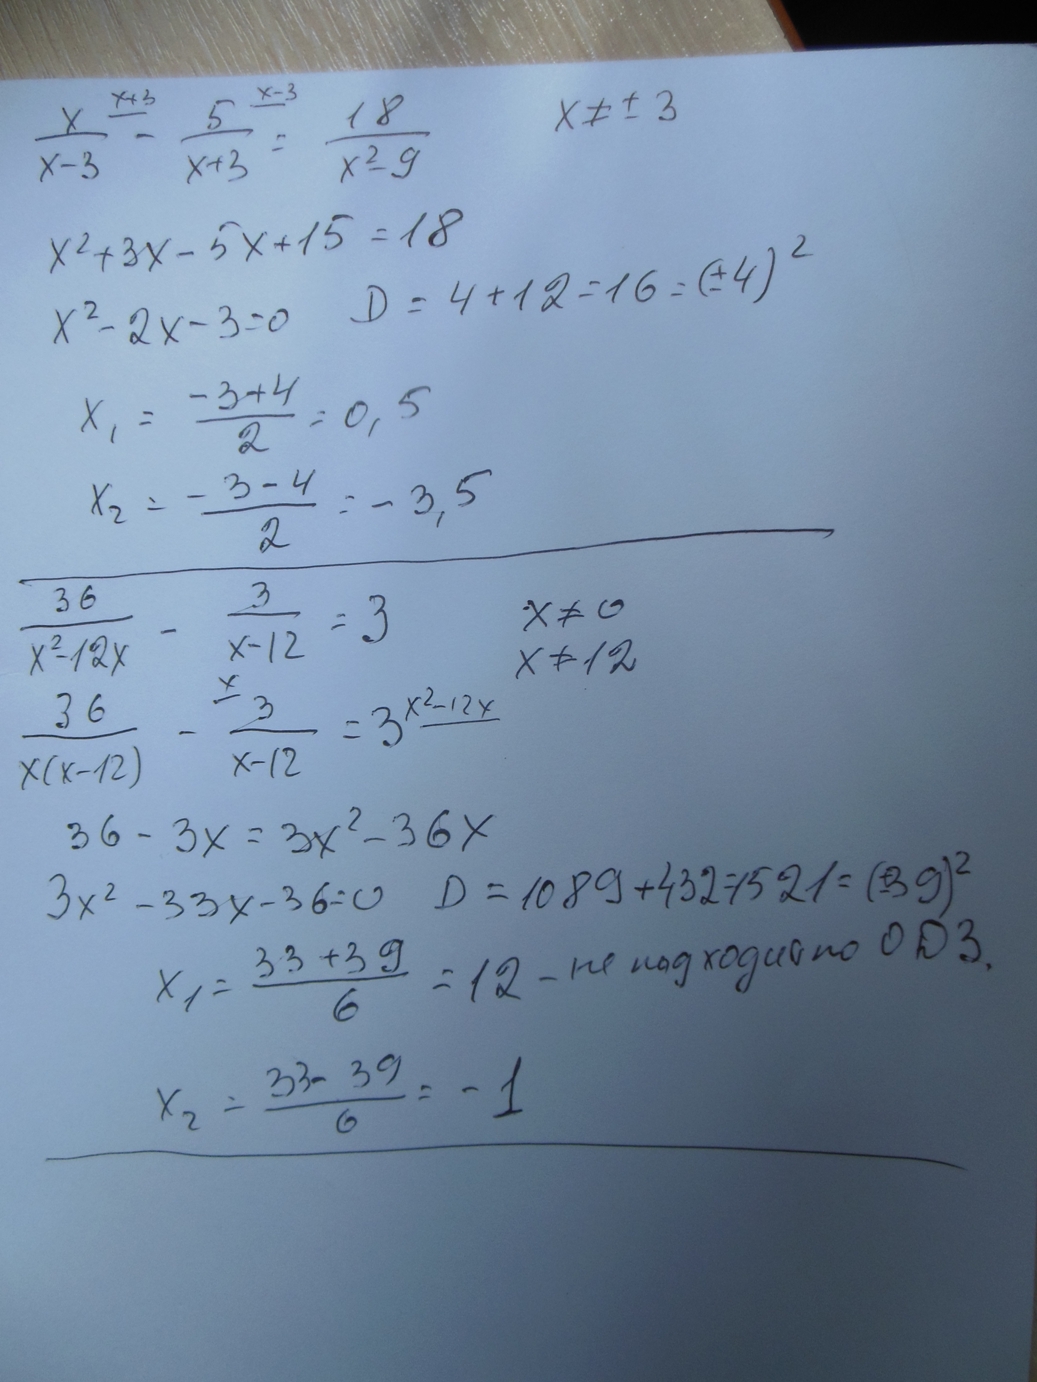 x/(x-3) ^x+3 - 5/(x+3) ^x-3 = 18/(x²-9)    x ≠ ± 3
x²+3x-5x+15=18
x²-2x-3=0    D = 4+12=16=(±4)²
x₁ = (-3+4)/2 = 0,5
x₂ = (-3-4)/2 = -3,5
36/(x²-12x) - 3/(x-12) = 3    x ≠ 0
x ≠ 12
36/(x(x-12)) - ^x 3/(x-12) = 3 ^x²-12x
36-3x=3x²-36x
3x²-33x-36=0    D = 1089+432=1521=(±39)²
x₁ = (33+39)/6 = 12 - не подходит по ОДЗ.
x₂ = (33-39)/6 = -1